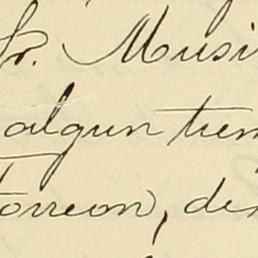 Sr. Musi
algun tiem
Torreon, des